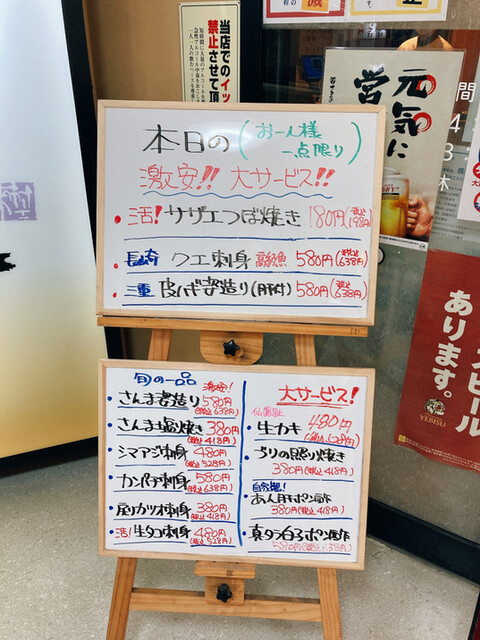 当店でのイッ
禁止させて頂
本日の(お一人様
一点限り)
激安!! 大サービス!!
・活! サザエつぼ焼き 180円(税込198円)
長崎 クエ刺身 高級魚 580円(税込638円)
三重 皮ハギ姿造り(肝付) 580円(税込638円)
旬の一品 激安!
・さんま姿造り 580円
(税込638円)
・さんま塩焼き 380円
(税込418円)
・シマアジ刺身 480円
(税込528円)
・カンパチ刺身 580円
(税込638円)
・戻りカツオ刺身 380円
(税込418円)
・活!生タコ刺身 480円
(税込528円)
大サービス!
・生カキ 480円
(税込528円)
・ぶりの照り焼き
380円(税込418円)
自家製!
・あん肝ポン酢
380円(税込418円)
・真タラ白子ポン酢
580円(税込638円)
元気に
営
間
休
あります。
YEBISU